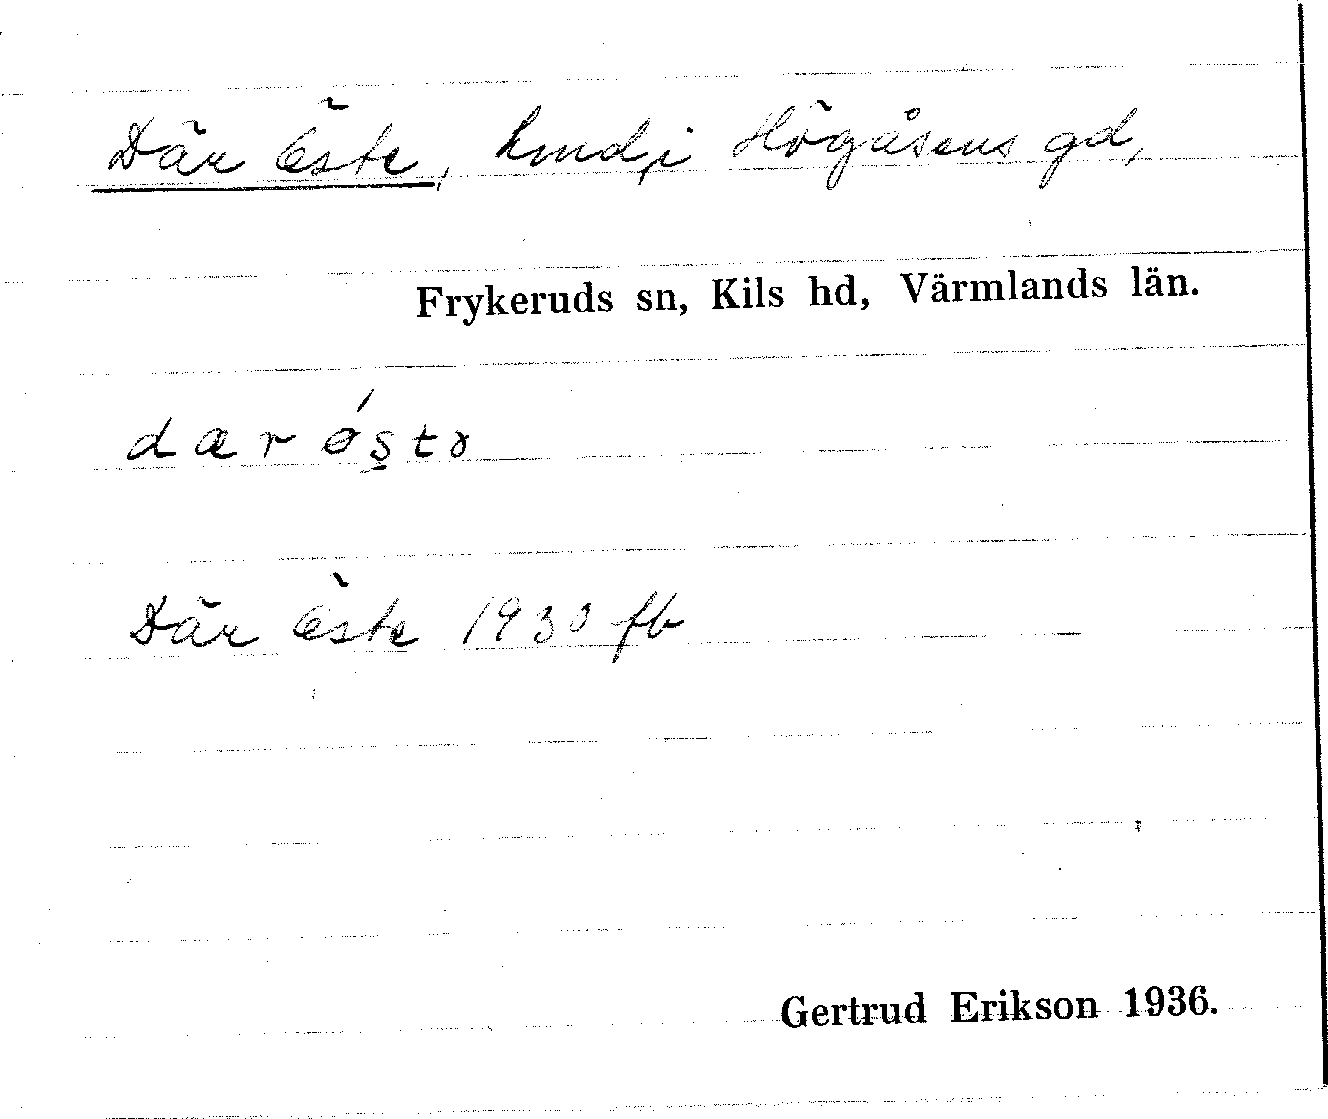 Där Öste, hmd, i Högåsens gd,
Frykeruds sn, Kils hd, Värmlands län.
Där Öste 1930 fb
Gertrud Erikson 1936.